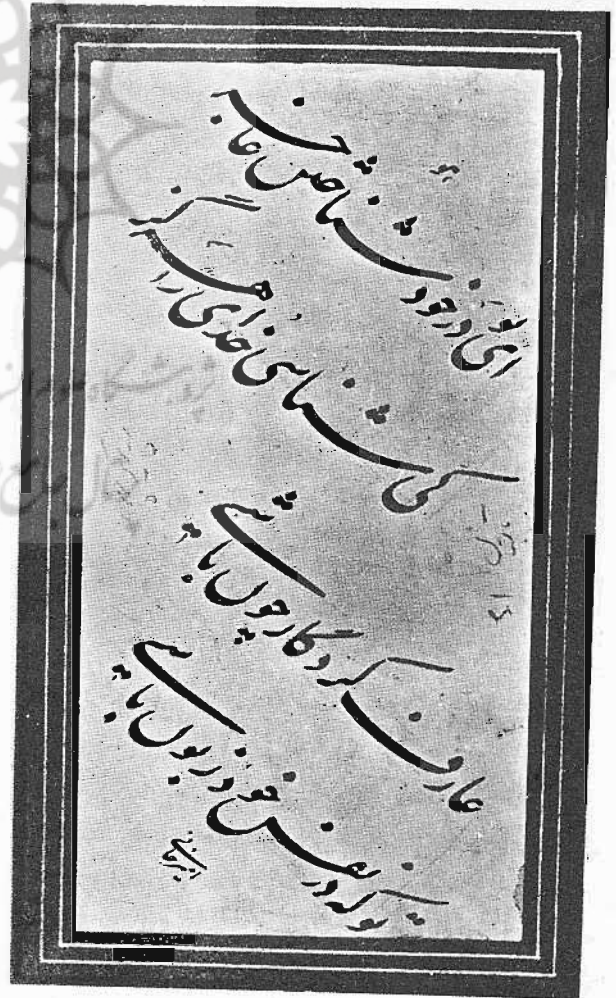 ای تو در خود شناختن عاجز
کی شناسی خدای را هرگز
عارف کردگار چون باشی
تو که در نفس خود زبون باشی
امیرخانی